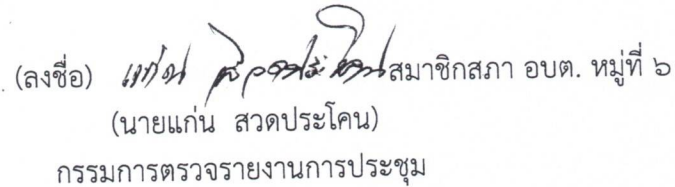 (ลงชื่อ) แก่น สวดประโคน สมาชิกสภา อบต. หมู่ที่ ๖
(นายแก่น สวดประโคน)
กรรมการตรวจรายงานการประชุม